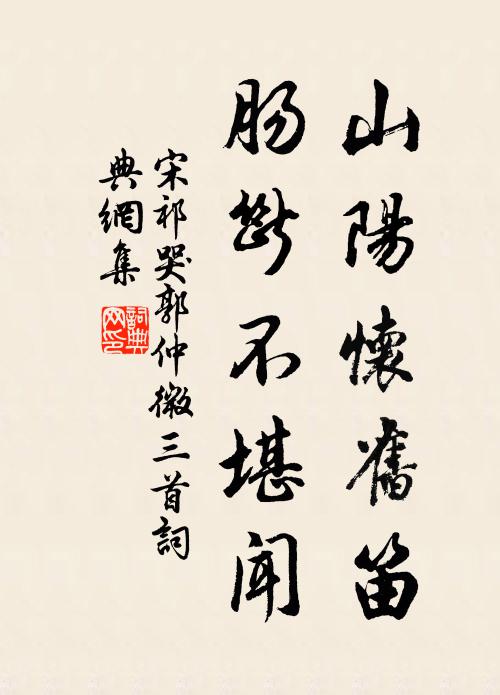 山陽懷舊笛
肠斷不堪聞
宋祁哭郭仲微三首詞
典網集
詞典
网印